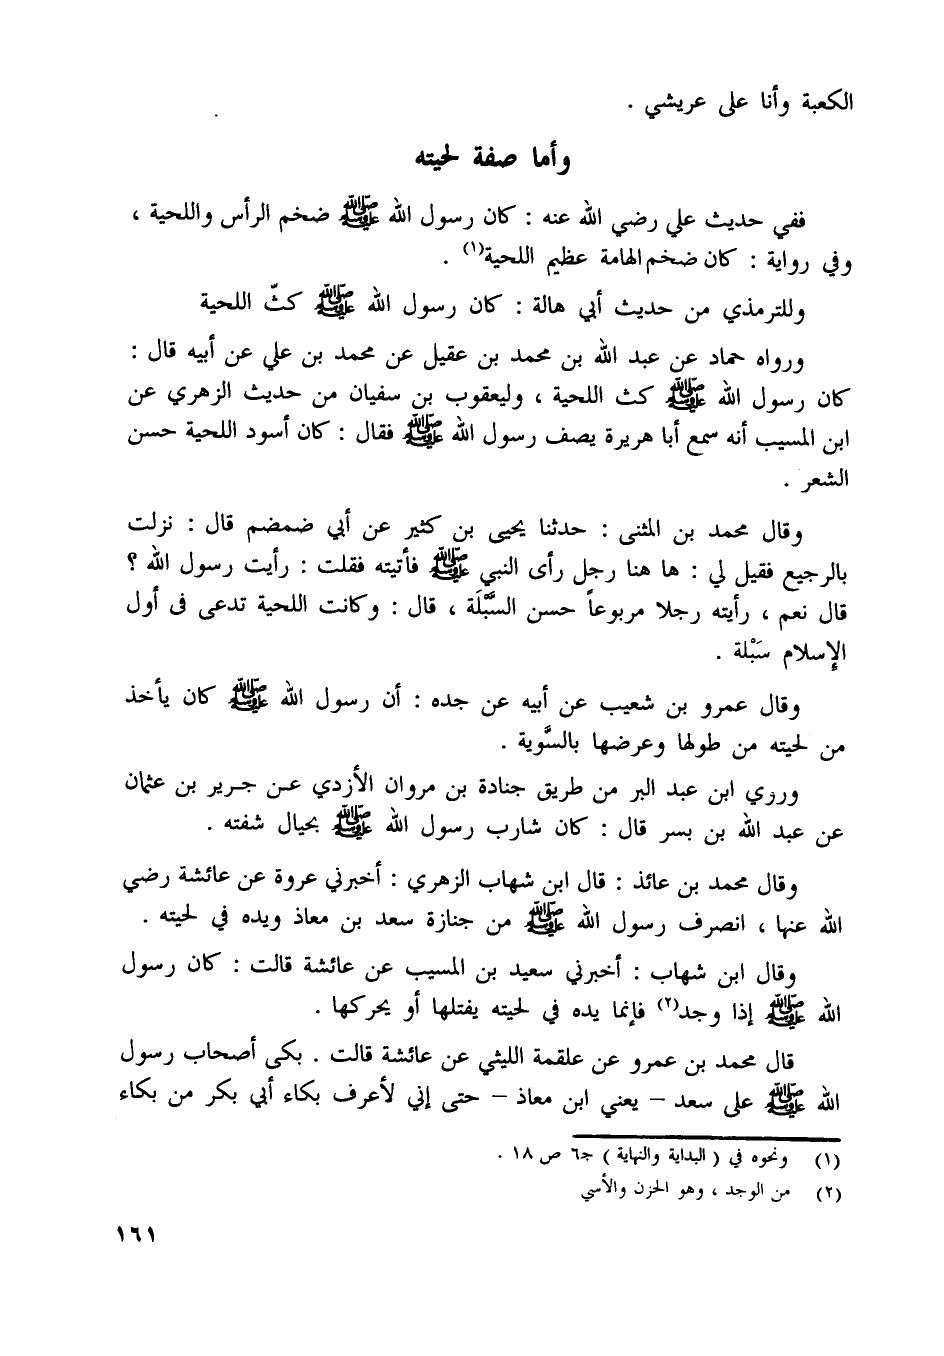 الكعبة وأنا على عريشي .
وأما صفة لحيته
ففي حديث علي رضي الله عنه : كان رسول الله ﷺ ضخم الرأس واللحية ،
وفي رواية : كان ضخم الهامة عظيم اللحية(١) .
وللترمذي من حديث أبي هالة : كان رسول الله ﷺ كثّ اللحية
ورواه حماد عن عبد الله بن محمد بن عقيل عن محمد بن علي عن أبيه قال :
كان رسول الله ﷺ كث اللحية ، وليعقوب بن سفيان من حديث الزهري عن
ابن المسيب أنه سمع أبا هريرة يصف رسول الله ﷺ فقال : كان أسود اللحية حسن
الشعر .
وقال محمد بن المثنى : حدثنا يحيى بن كثير عن أبي ضمضم قال : نزلت
بالرجيع فقيل لي : ها هنا رجل رأى النبي ﷺ فأتيته فقلت : رأيت رسول الله ؟
قال نعم ، رأيته رجلا مربوعاً حسن السَّبَلَة ، قال : وكانت اللحية تدعى فى أول
الإسلام سَبْلة .
وقال عمرو بن شعيب عن أبيه عن جده : أن رسول الله ﷺ كان يأخذ
من لحيته من طولها وعرضها بالسَّوية .
وروي ابن عبد البر من طريق جنادة بن مروان الأزدي عن جرير بن عثمان
عن عبد الله بن بسر قال : كان شارب رسول الله ﷺ بحيال شفته .
وقال محمد بن عائذ : قال ابن شهاب الزهري : أخبرني عروة عن عائشة رضي
الله عنها ، انصرف رسول الله ﷺ من جنازة سعد بن معاذ ويده في لحيته .
وقال ابن شهاب : أخبرني سعيد بن المسيب عن عائشة قالت : كان رسول
الله ﷺ إذا وجد(٢) فإنما يده في لحيته يفتلها أو يحركها .
قال محمد بن عمرو عن علقمة الليثي عن عائشة قالت . بكى أصحاب رسول
الله ﷺ على سعد – يعني ابن معاذ – حتى إني لأعرف بكاء أبي بكر من بكاء
(١) ونحوه في ( البداية والنهاية ) جـ٦ ص ١٨ .
(٢) من الوجد ، وهو الحزن والأسي
١٦١